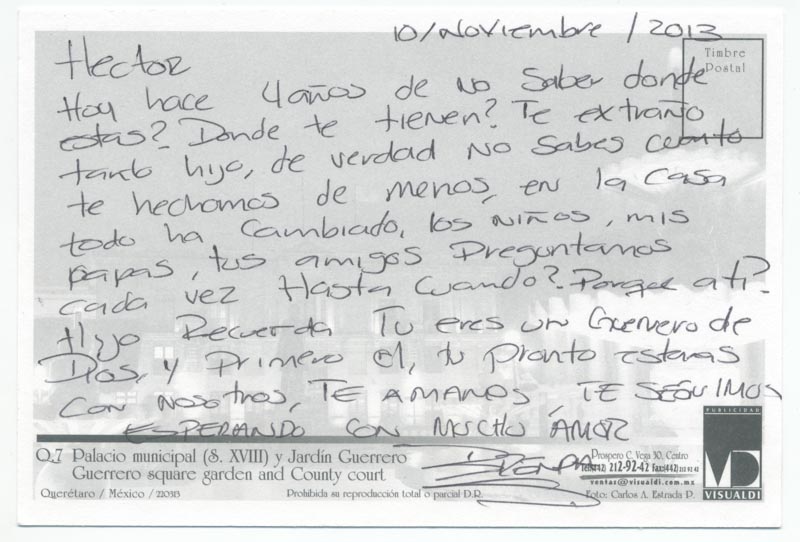 10/Noviembre / 2013
Timbre
Postal
Hector
Hoy hace 4 años de no saber donde
estas? Donde te tienen? Te extraño
tanto hijo, de verdad no sabes cuanto
te hechamos de menos, en la casa
todo ha cambiado, los niños, mis
papas, tus amigos Preguntamos
cada vez Hasta cuando? Porque a ti?
Hijo Recuerda Tu eres un Guerrero de
Dios, y Primero el, tu pronto estaras
con nosotros, TE AMAMOS, TE SEGUIMOS
ESPERANDO CON MUCHO AMOR
BRENDA
Q.7 Palacio municipal (S. XVIII) y Jardín Guerrero
Guerrero square garden and County court
Querétaro / México / 220313
Prohibida su reproducción total o parcial D.R.
Prospero C. Vega 30, Centro
Tels(442) 212-92-42 Fax:(442) 212 92 42
ventas@visualdi.com.mx
Foto: Carlos A. Estrada P.
PUBLICIDAD
VD
VISUALDI